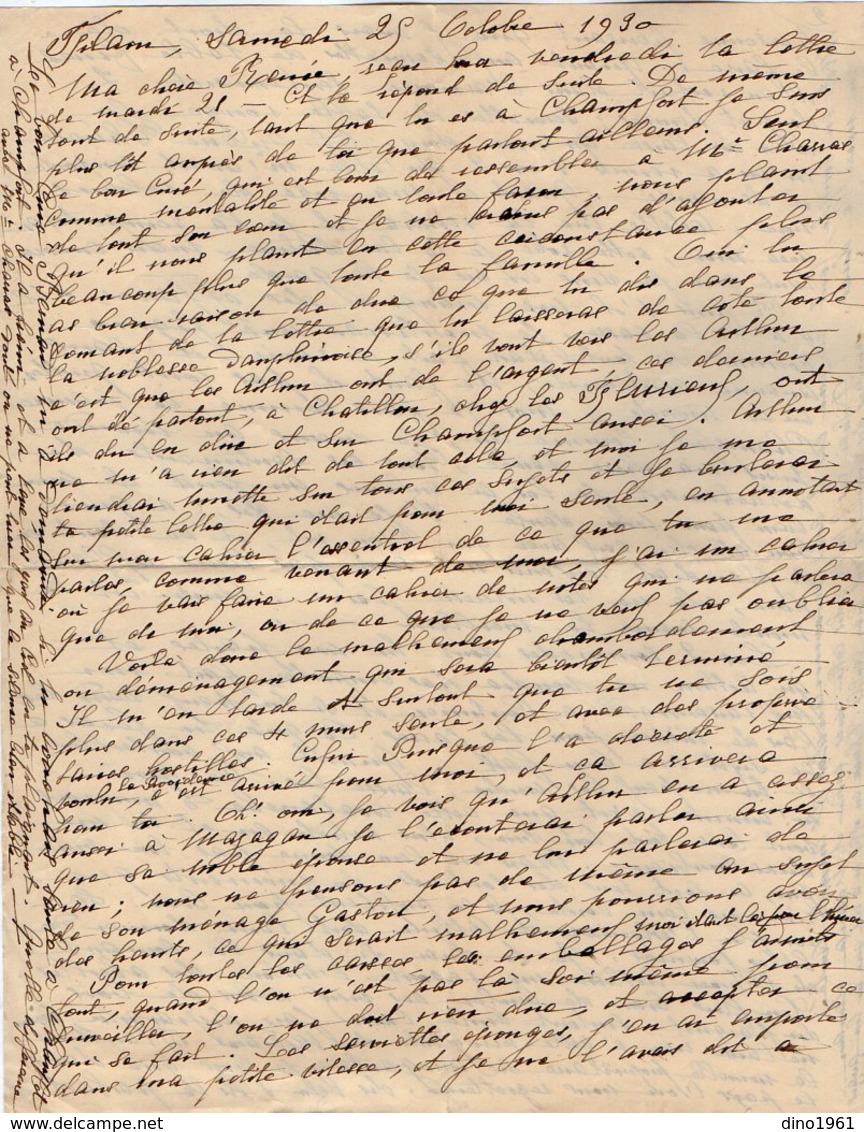 Samedi 25 Octobre 1930
Ma chère Renée, reçu hier vendredi ta lettre
de mardi 21 — Et te répond de suite. De même
tout de suite, tant que tu es à Champfort je suis
plus tôt auprès de toi que partout ailleurs. Seul
le bon Curé, qui est loin de ressembler à Mr Charras
comme mentalité et en toute façon, nous plaint
de tout son cœur et je ne crains pas d'ajouter
qu'il nous plaint en cette circonstance plus
beaucoup plus que toute la famille. Oui tu
as bien raison de dire ce que tu dis dans le
de la lettre que tu laisseras de côté toute
la noblesse Dauphinoise, s'ils vont vers les Arthur
c'est que les Arthur ont de l'argent, ces derniers
ont de partout, à Chatillon, chez les ont
ils du en dire et sur Champfort aussi. Arthur
ne m'a rien dit de tout cela et moi je me
tiendrai muette sur tous ces sujets et je brulerai
ta petite lettre qui était pour moi seule, en annotant
sur mon cahier l'essentiel de ce que tu me
parles, comme venant de moi, j'ai un cahier
où je vais faire un cahier de notes qui ne parlera
que de moi, ou de ce que je ne veux pas oublier
Voilà donc le malheureux chambardement
ou déménagement qui sera bientôt terminé
Il m'en tarde et surtout que tu ne sois
plus dans ces 4 murs seule, et avec des proprié-
taires hostiles. Enfin Puisque l'a décrété et
voulu la Providence, c'est arrivé pour moi, et ça arrivera
pour toi. Oh! oui, je vois qu'Arthur en a assez
aussi à Mazagan je l'écouterai parler ainsi
que sa noble épouse et ne leur parlerai de
rien; nous ne pensons pas de même au sujet
de son ménage Gaston, et nous pourrions avoir
des heurts, ce qui serait malheureux moi étant là pour l'hiver
Pour toutes les caisses, les emballages
tout, quand l'on n'est pas là soi même pour
surveiller, l'on ne doit rien dire, et accepter ce
qui se fait. Les serviettes éponges, j'en ai emporté
dans ma petite vitesse, et je ne l'avais dit à
Le bon Curé m'a demandé si tu étais seule à Champfort
à Champfort. Il a
Mr Charras dont on ne peut rien que le silence
dino1961